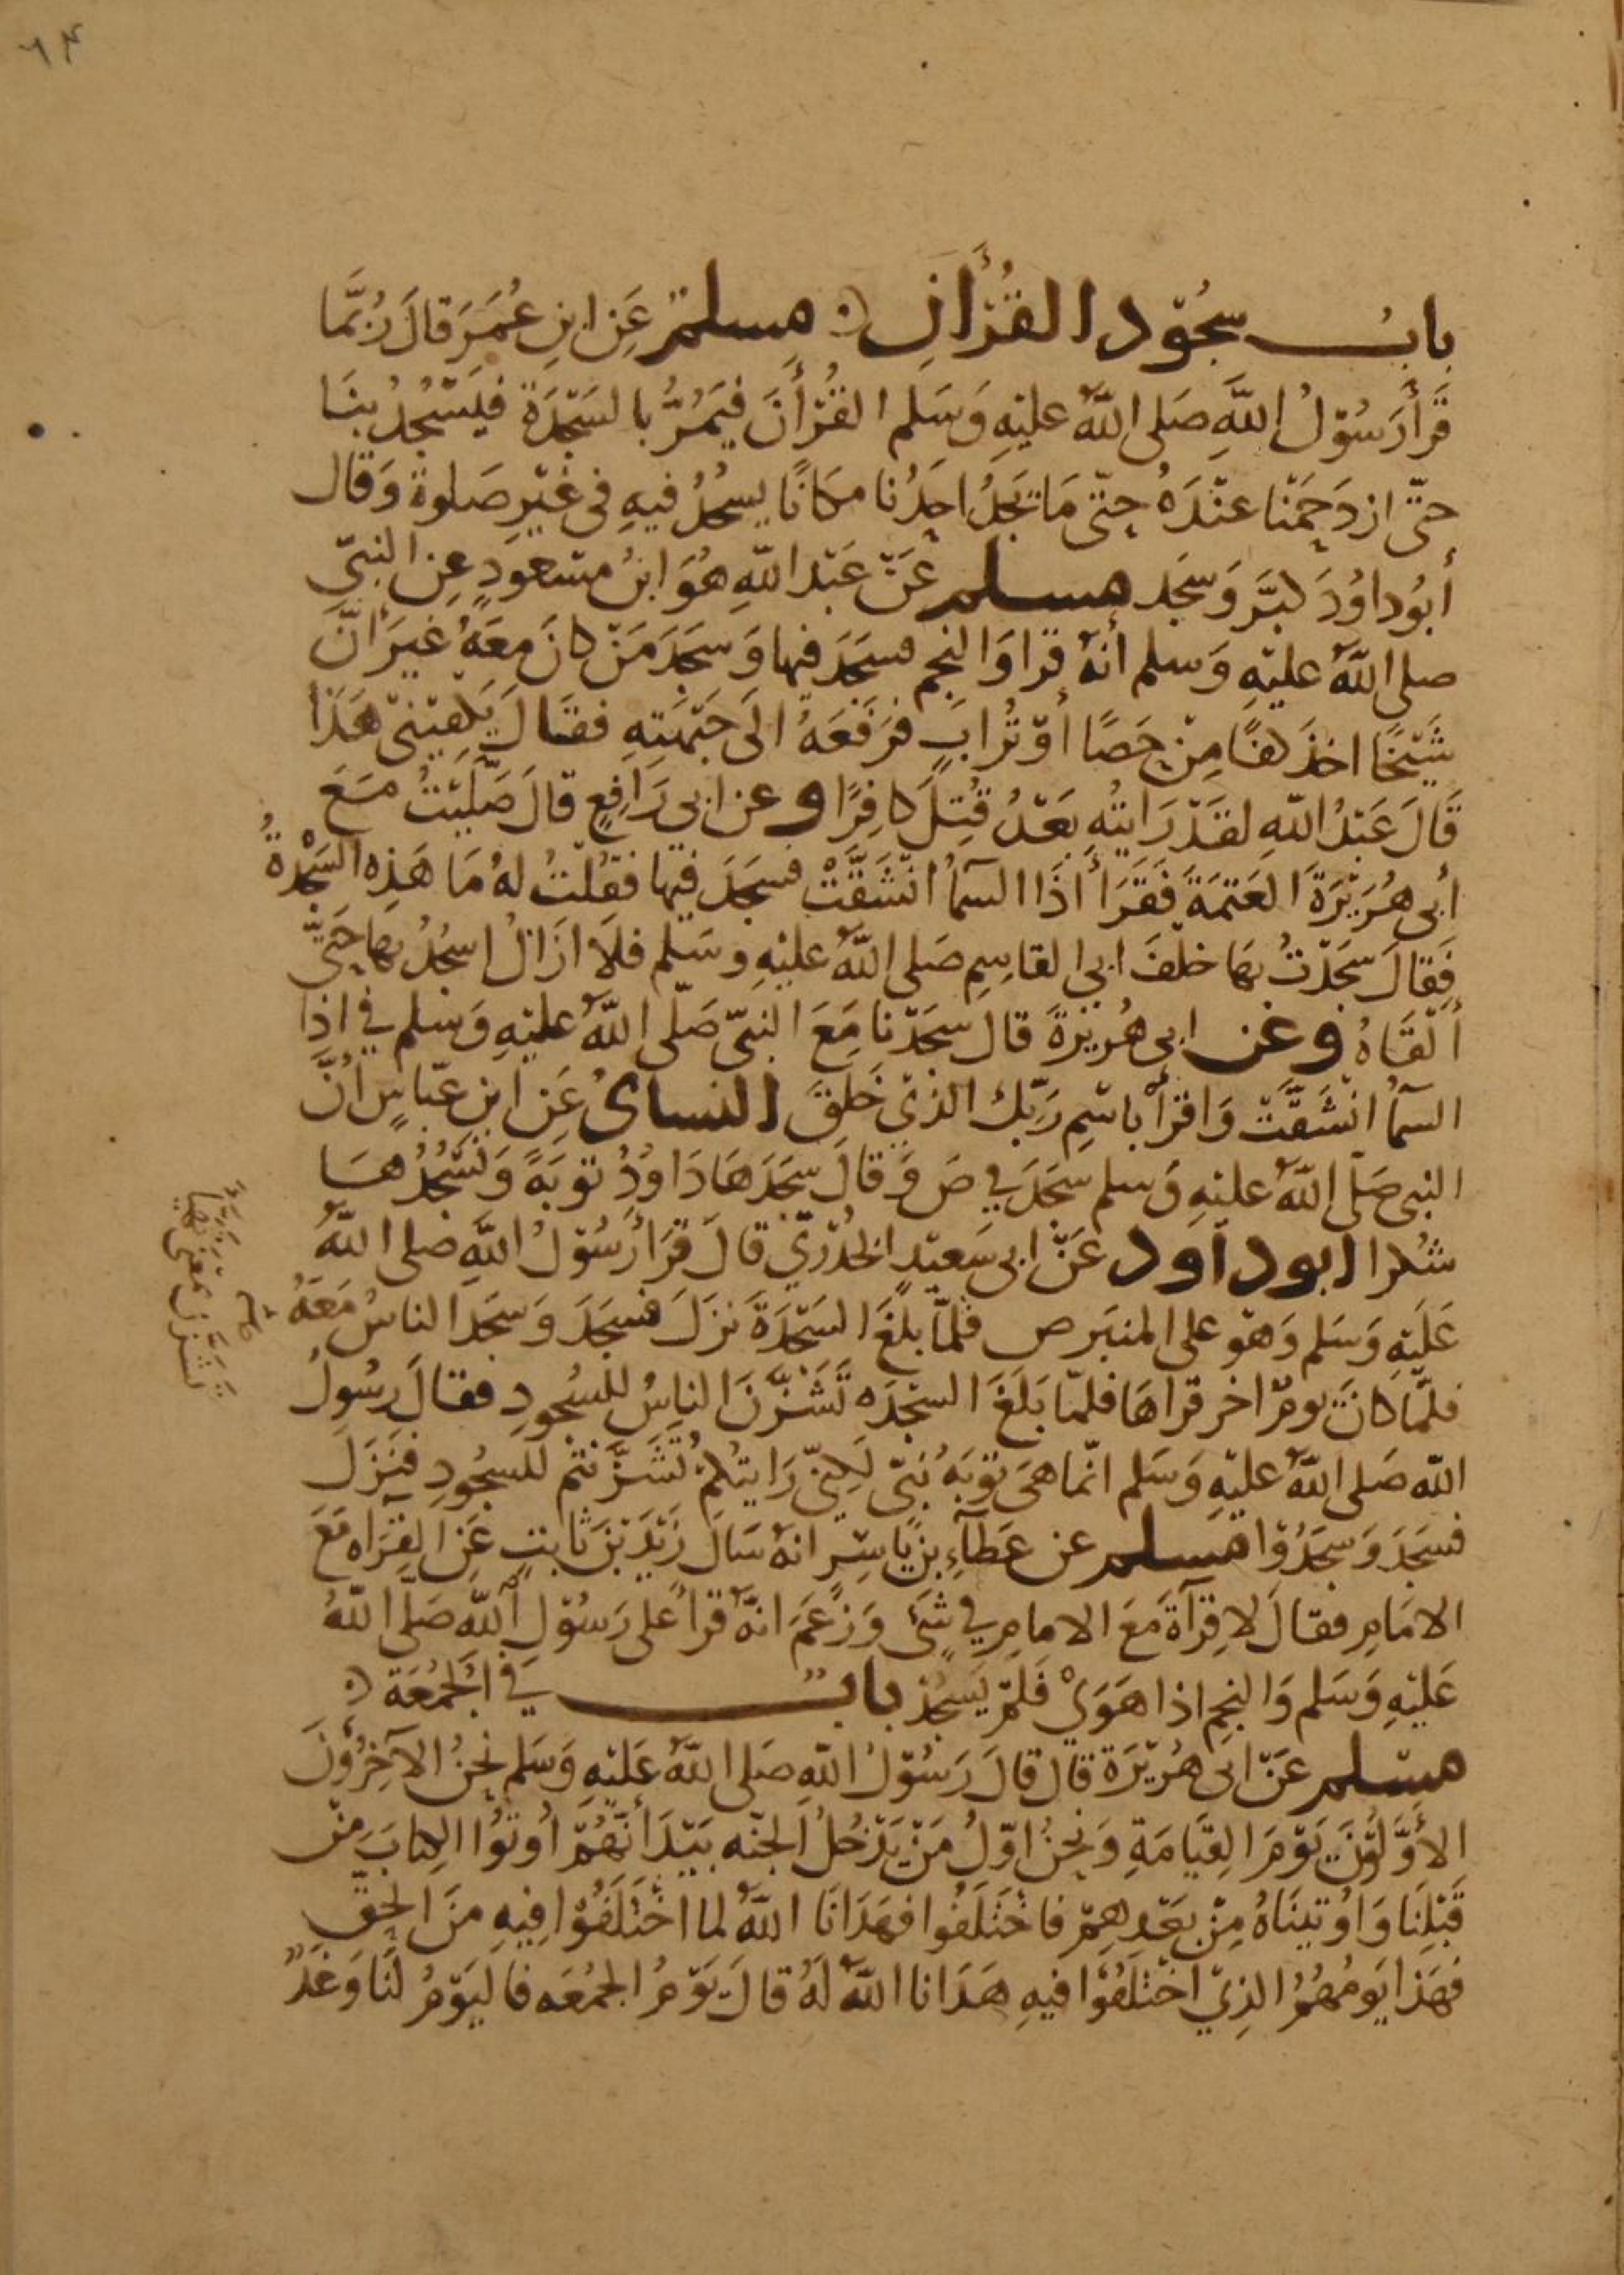 ٦٤
باب سُجُوْد القُرْأَنِ مسلم عَنِ ابنِ عُمَرَ قالَ رُبَّمَا
قَرَأَ رَسُوْلُ اللَّهِ صَلى اللَّهُ عليْهِ وَسَلم القُرْأَنَ فيَمُرُّ بالسَجْدَةِ فيَسْجُدُ بنَا
حتّى ازدَحَمْنا عنْدَهُ حتّى مَا تجَدُ احَدُنا مكَانًا يسجُدُ فيهِ فى غَيْرِ صَلوة وَقال
أبُو داوُدَ كبَّر وَسَجَد مسلم عَنْ عَبْد اللَّهِ هُوَ ابنُ مسْعودٍ عنِ النبىّ
صلى اللَّهُ عليْهِ وَسلم أنهُ قرا وَالنجم فسَجَدَ فيها وَسَجَدَ مَنْ كانَ معَهُ غيرَ أنَّ
شَيْخًا اخذَ كفًا مِنْ حَصًا أوْ تُرابٍ فرَفَعَهُ الَى جَبْهَتِهِ فقَالَ يَكفِيْنىْ هَذَا
قَالَ عَبْدُ اللَّهِ لقَدْ رَايتُهِ بَعْدُ قُتِلَ كافِرًا وعن ابى رَافِعٍ قالَ صَلَّيْتُ مَعَ
أبى هُرَيْرَةَ العَتمَةَ فَقَرَأَ اذَا السمآُ انْشَقَّتْ فسَجَدَ فيها فقُلتُ لهُ مَا هَذِه السَجْدةُ
فَقالَ سَجَدْتُ بهَا خلْفَ ابى القاسِمِ صَلى اللَّهُ عليْهِ وسَلم فلَا ازَالُ اسجُدُ بها حَتّى
ألْقَاهُ وعَن ابى هُريْرةَ قال سجَدْنا مَعَ النبىّ صَلّى اللَّهُ عليْهِ وَسَلم في اذا
السمآُ انْشَقَّتْ وَاقرَأْ باسْمِ رَبّك الذيْ خَلقَ النسائُ عَنِ ابن عَبّاسٍ انَّ
النبى صَلّى اللَّهُ عليْهِ وَسلم سجَدَ في صَ وَقالَ سجَدَهَا دَاوُدُ توبَةً وَنَسْجُدُهَا
شكرا ابوداود عَنْ ابى سَعيْدٍ الخُدْريّ قالَ قرَأ رَسُوْلُ اللَّهِ صلى اللَّهُ
عَلَيْهِ وَسَلم وَهوَ على المنبَر ص فلمّا بلَغَ السَجْدَةَ نزَلَ فسَجَدَ وَسَجدَ الناسُ مَعَهُ
فلمّا كانَ يومٌ اخر قراهَا فلمّا بَلَغَ السجْدَه تَشَزَّنَ الناسُ للسُجودِ فقالَ رسُولُ
اللَّه صَلى اللَّهُ عليْهِ وَسَلم انّما هىَ توْبَةُ نَبىّ لَكِنّى رَايتُكمْ تَشَزَّنْتُم للسجُودِ فنَزَلَ
فسَجَدَ وَسَجَدُوْا مسلم عن عَطَآءِ بن يَاسِرٍ انهُ سَالَ زَيْدَ بْنَ ثابتٍ عَنِ القِرَاه مَعَ
الامَامِ فقالَ لا قِرآةَ مَعَ الامامِ في شىَ وَزَعَمَ انّهُ قرأ على رَسُوْلِ اللَّه صَلّى اللَّهُ
عَليْهِ وَسَلم وَالنجمِ اذا هَوَىْ فَلمْ يَسْجُدْ باب في الجُمُعَة
مسْلم عَنْ ابى هُرَيْرَة قال قالَ رَسُوْلُ اللَّهِ صَلى اللَّهُ عَليْهِ وَسَلم نحنُ الآخِرُونَ
الأوَّلُوْنَ يَوْمَ القِيَامَةِ وَنحنُ اوّلُ مَنْ يَدْخُلُ الجنّه بَيْدَ أنّهُمْ اُوتُوا الكِتابَ منْ
قَبْلِنَا وَاُوتينَاهُ مِنْ بَعْدِهِمْ فاخْتَلَفُوا فهَدَانَا اللَّهُ لما اخْتَلَفُوْا فِيهِ منَ الحَقّ
فهَذا يَومُهُمُ الذِيْ اخْتلَفُوْا فيهِ هَدَانا اللَّهُ لَهُ قالَ يَوْمُ الجُمُعَه فاليَوْمُ لَنَا وَغَدٌ